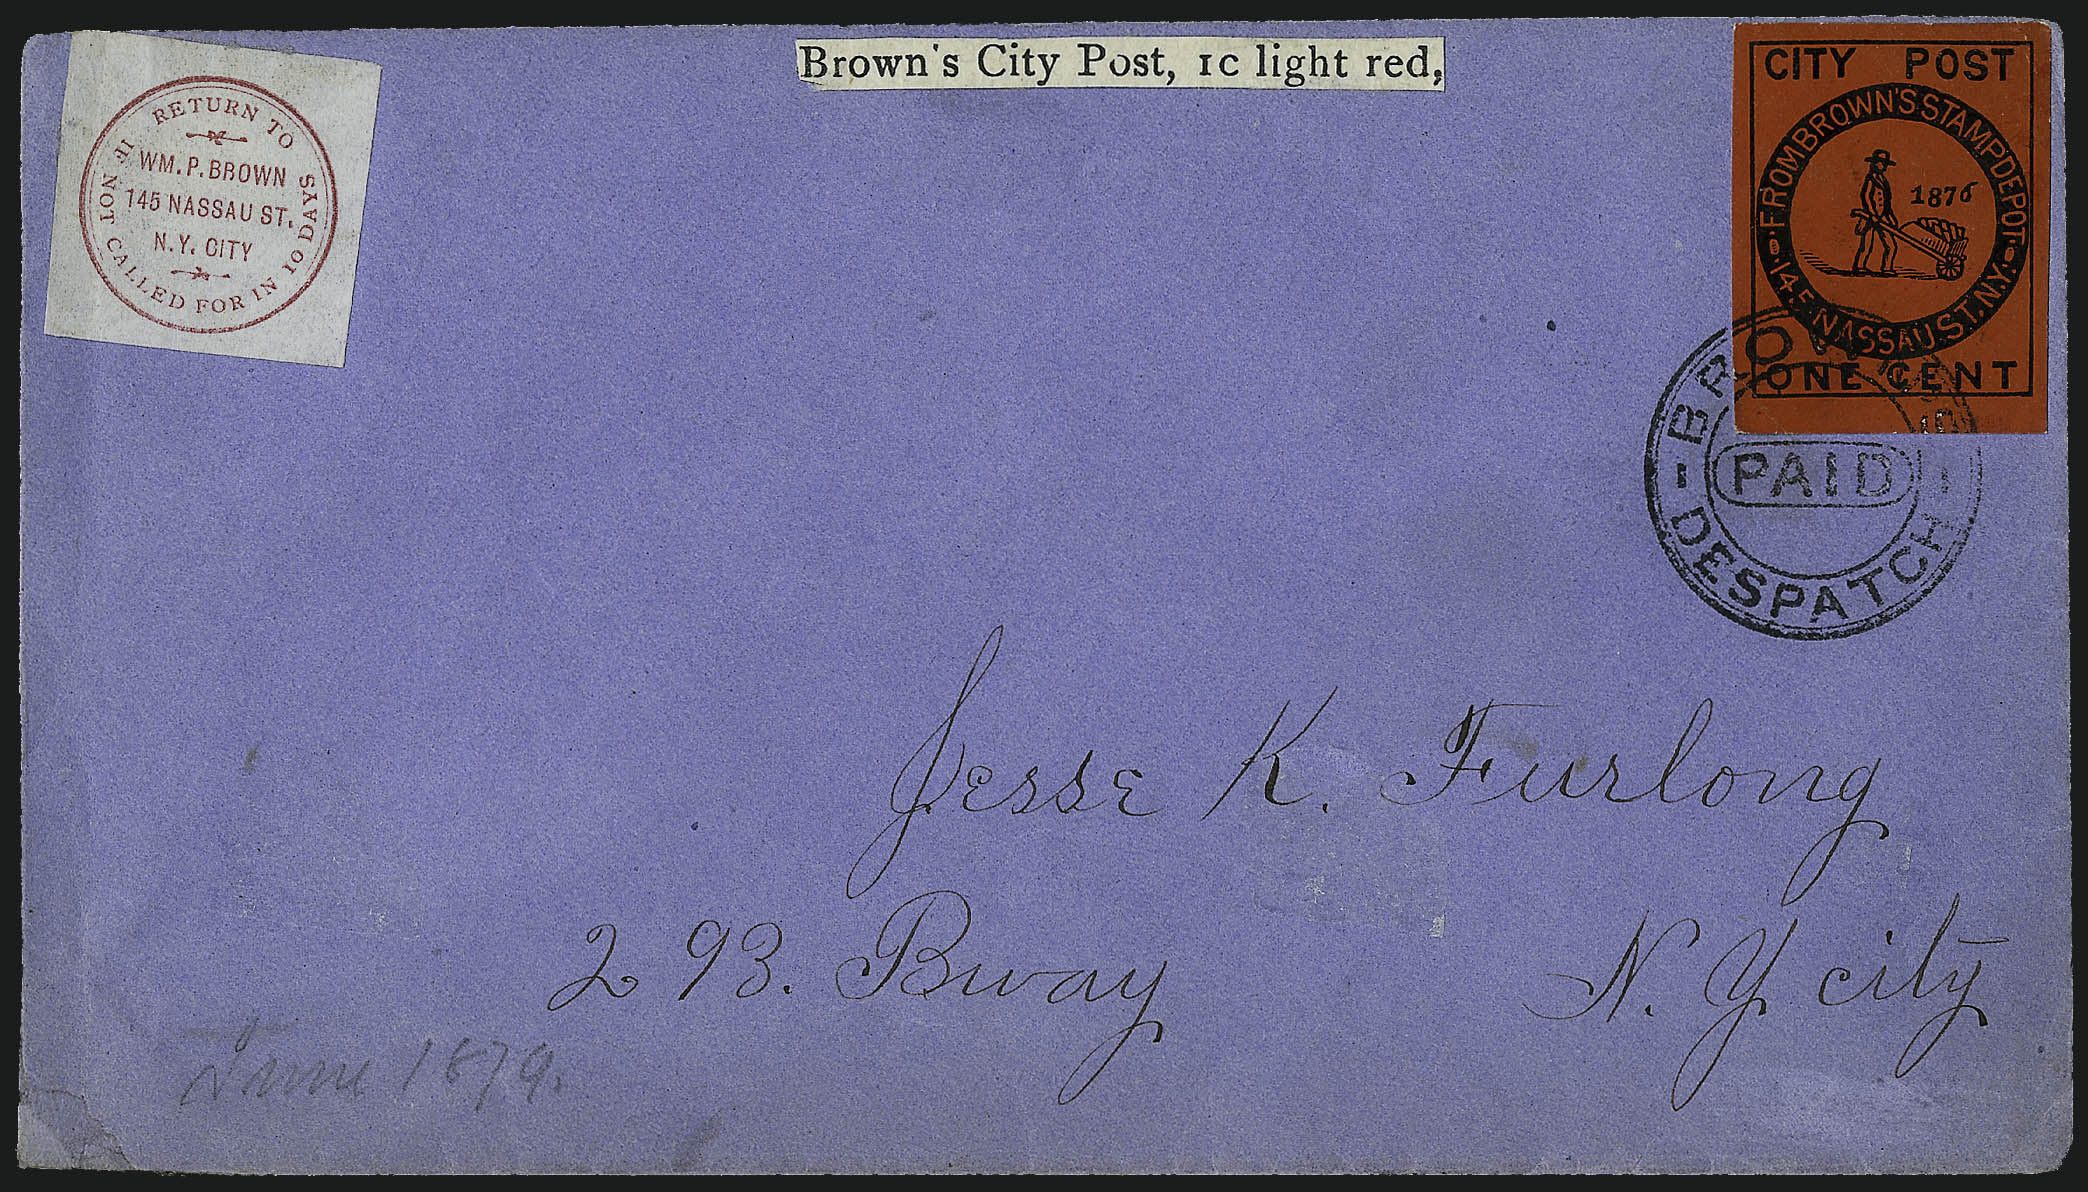 RETURN TO
WM. P. BROWN
145 NASSAU ST.
N.Y. CITY
IF NOT CALLED FOR IN 10 DAYS
Brown's City Post, 1c light red,
CITY POST
FROM BROWN'S STAMP DEPOT
1876
145 NASSAU ST. N.Y.
ONE CENT
BROWN'S
PAID
DESPATCH
Jesse K. Furlong
293. Bway N.Y city
1879.